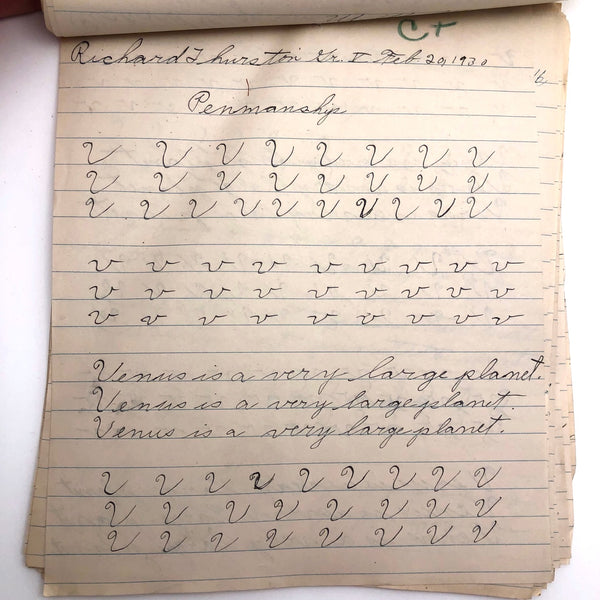 C+
Richard Thurston Gr. V Feb 20, 1930
Penmanship
V V V V V V V V
V V V V V V V V
V V V V V V V V V V
v v v v v v v v v
v v v v v v v v v
v v v v v v v v v
Venus is a very large planet.
Venus is a very large planet.
Venus is a very large planet.
V V V V V V V V V
V V V V V V V V
V V V V V V V V